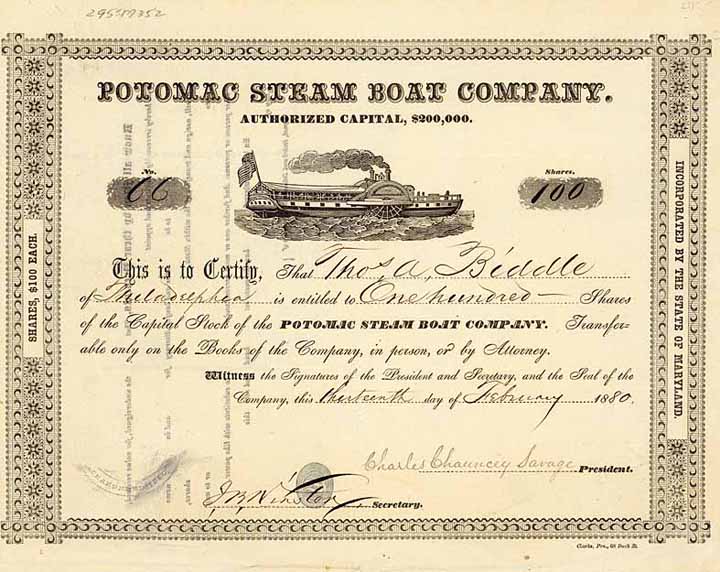 295-89352
POTOMAC STEAM BOAT COMPANY.
AUTHORIZED CAPITAL, $200,000.
No. Shares.
66 100
This is to Certify, That Thos. A. Biddle
of Philadelphia is entitled to One hundred — Shares
of the Capital Stock of the POTOMAC STEAM BOAT COMPANY. Transfer-
able only on the Books of the Company, in person, or by Attorney.
Witness the Signatures of the President and Secretary, and the Seal of the
Company, this thirteenth day of February 1880.
Charles Chauncey Savage President.
Secretary.
SHARES, $100 EACH.
INCORPORATED BY THE STATE OF MARYLAND.